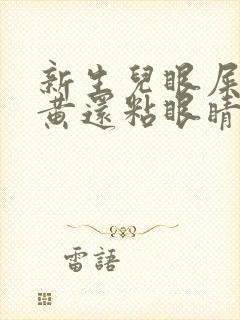 新生兒眼屎
黃還粘眼睛
雷語